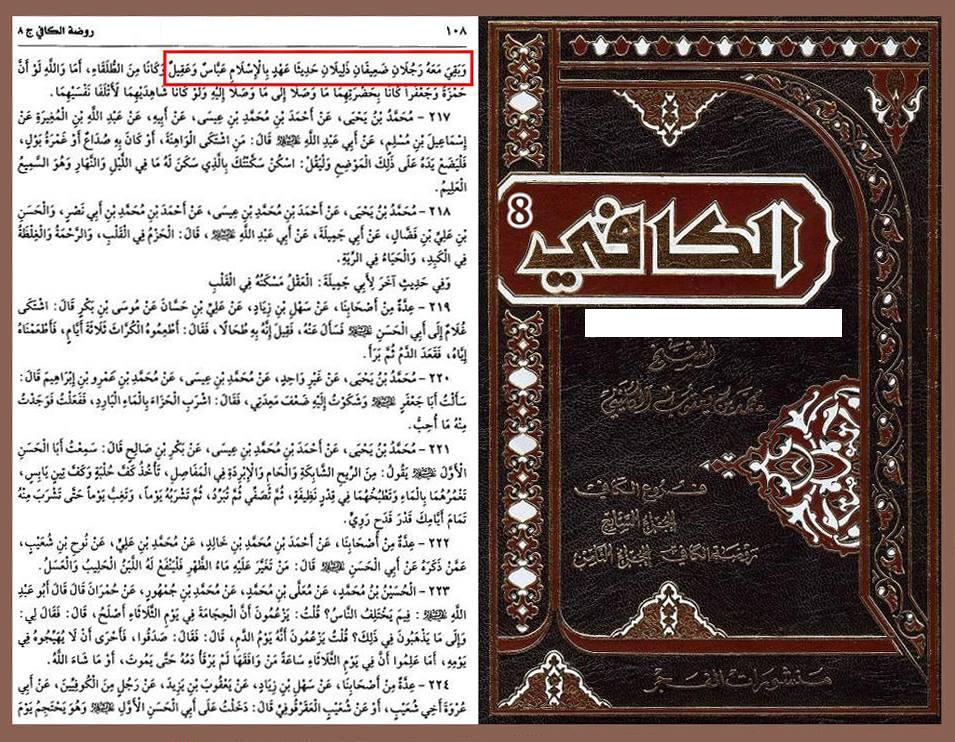 ١٠٨
روضة الكافي ج ٨
وَبَقِيَ مَعَهُ رَجُلَانِ ضَعِيفَانِ ذَلِيلَانِ حَدِيثَا عَهْدٍ بِالْإِسْلَامِ عَبَّاسٌ وَعَقِيلٌ وَكَانَا مِنَ الطُّلَقَاءِ، أَمَا وَاللَّهِ لَوْ أَنَّ
حَمْزَةَ وَجَعْفَراً كَانَا بِحَضْرَتِهِمَا مَا وَصَلَا إِلَى مَا وَصَلَا إِلَيْهِ وَلَوْ كَانَا شَاهِدَيْهِمَا لَأَتْلَفَا نَفْسَيْهِمَا.
٢١٧ - مُحَمَّدُ بْنُ يَحْيَى، عَنْ أَحْمَدَ بْنِ مُحَمَّدِ بْنِ عِيسَى، عَنْ أَبِيهِ، عَنْ عَبْدِ اللَّهِ بْنِ الْمُغِيرَةِ عَنْ
إِسْمَاعِيلَ بْنِ مُسْلِمٍ، عَنْ أَبِي عَبْدِ اللَّهِ قَالَ: مَنِ اشْتَكَى الْوَاهِنَةَ، أَوْ كَانَ بِهِ صُدَاعٌ أَوْ غَمْرَةُ بَوْلٍ،
فَلْيَضَعْ يَدَهُ عَلَى ذَلِكَ الْمَوْضِعِ وَلْيَقُلْ: اسْكُنْ سَكَّنْتُكَ بِالَّذِي سَكَنَ لَهُ مَا فِي اللَّيْلِ وَالنَّهَارِ وَهُوَ السَّمِيعُ
الْعَلِيمُ.
٢١٨ - مُحَمَّدُ بْنُ يَحْيَى، عَنْ أَحْمَدَ بْنِ مُحَمَّدِ بْنِ عِيسَى، عَنْ أَحْمَدَ بْنِ مُحَمَّدِ بْنِ أَبِي نَصْرٍ، وَالْحَسَنِ
بْنِ عَلِيِّ بْنِ فَضَّالٍ، عَنْ أَبِي جَمِيلَةَ، عَنْ أَبِي عَبْدِ اللَّهِ، قَالَ: الْحَزْمُ فِي الْقَلْبِ، وَالرَّحْمَةُ وَالْغِلْظَةُ
فِي الْكَبِدِ، وَالْحَيَاءُ فِي الرِّيَةِ.
وَفِي حَدِيثٍ آخَرَ لِأَبِي جَمِيلَةَ: الْعَقْلُ مَسْكَنُهُ فِي الْقَلْبِ
٢١٩ - عِدَّةٌ مِنْ أَصْحَابِنَا، عَنْ سَهْلِ بْنِ زِيَادٍ، عَنْ عَلِيِّ بْنِ حَسَّانَ عَنْ مُوسَى بْنِ بَكْرٍ قَالَ: اشْتَكَى
غُلَامٌ إِلَى أَبِي الْحَسَنِ فَسَأَلَ عَنْهُ، فَقِيلَ إِنَّهُ بِهِ طُحَالًا، فَقَالَ: أَطْعِمُوهُ الْكُرَّاثَ ثَلَاثَةَ أَيَّامٍ، فَأَطْعَمْنَاهُ
إِيَّاهُ، فَقَعَدَ الدَّمُ ثُمَّ بَرَأَ.
٢٢٠ - مُحَمَّدُ بْنُ يَحْيَى، عَنْ غَيْرِ وَاحِدٍ، عَنْ مُحَمَّدِ بْنِ عِيسَى، عَنْ مُحَمَّدِ بْنِ عَمْرِو بْنِ إِبْرَاهِيمَ قَالَ:
سَأَلْتُ أَبَا جَعْفَرٍ وَشَكَوْتُ إِلَيْهِ ضَعْفَ مَعِدَتِي، فَقَالَ: اشْرَبِ الْحَزَاءَ بِالْمَاءِ الْبَارِدِ، فَفَعَلْتُ فَوَجَدْتُ
مِنْهُ مَا أُحِبُّ.
٢٢١ - مُحَمَّدُ بْنُ يَحْيَى، عَنْ أَحْمَدَ بْنِ مُحَمَّدِ بْنِ عِيسَى، عَنْ بَكْرِ بْنِ صَالِحٍ قَالَ: سَمِعْتُ أَبَا الْحَسَنِ
الْأَوَّلَ يَقُولُ: مِنَ الرِّيحِ الشَّابِكَةِ وَالْحَامِ وَالْإِبْرِدَةِ فِي الْمَفَاصِلِ، تَأْخُذُ كَفَّ حُلْبَةٍ وَكَفَّ تِينٍ يَابِسٍ،
تَغْمُرُهُمَا بِالْمَاءِ وَتَطْبُخُهُمَا فِي قِدْرٍ نَظِيفَةٍ، ثُمَّ تُصَفِّي ثُمَّ تُبَرِّدُ، ثُمَّ تَشْرَبُهُ يَوْماً، وَتُغِبُّ يَوْماً حَتَّى تَشْرَبَ مِنْهُ
تَمَامَ أَيَّامِكَ قَدْرَ قَدَحٍ رَوِيٍّ.
٢٢٢ - عِدَّةٌ مِنْ أَصْحَابِنَا، عَنْ أَحْمَدَ بْنِ مُحَمَّدِ بْنِ خَالِدٍ، عَنْ مُحَمَّدِ بْنِ عَلِيٍّ، عَنْ نُوحِ بْنِ شُعَيْبٍ،
عَمَّنْ ذَكَرَهُ عَنْ أَبِي الْحَسَنِ قَالَ: مَنْ تَغَيَّرَ عَلَيْهِ مَاءُ الظَّهْرِ فَلْيَنْفَعْ لَهُ اللَّبَنُ الْحَلِيبُ وَالْعَسَلُ.
٢٢٣ - الْحُسَيْنُ بْنُ مُحَمَّدٍ، عَنْ مُعَلَّى بْنِ مُحَمَّدٍ، عَنْ مُحَمَّدِ بْنِ جُمْهُورٍ، عَنْ حُمْرَانَ قَالَ قَالَ أَبُو عَبْدِ
اللَّهِ: فِيمَ يَخْتَلِفُ النَّاسُ؟ قُلْتُ: يَزْعُمُونَ أَنَّ الْحِجَامَةَ فِي يَوْمِ الثَّلَاثَاءِ أَصْلَحُ، قَالَ: فَقَالَ لِي:
وَإِلَى مَا يَذْهَبُونَ فِي ذَلِكَ؟ قُلْتُ يَزْعُمُونَ أَنَّهُ يَوْمُ الدَّمِ، قَالَ: فَقَالَ: صَدَقُوا، فَأَحْرَى أَنْ لَا يُهَيِّجُوهُ فِي
يَوْمِهِ، أَمَا عَلِمُوا أَنَّ فِي يَوْمِ الثَّلَاثَاءِ سَاعَةً مَنْ وَافَقَهَا لَمْ يَرْقَأْ دَمُهُ حَتَّى يَمُوتَ، أَوْ مَا شَاءَ اللَّهُ.
٢٢٤ - عِدَّةٌ مِنْ أَصْحَابِنَا، عَنْ سَهْلِ بْنِ زِيَادٍ، عَنْ يَعْقُوبَ بْنِ يَزِيدَ، عَنْ رَجُلٍ مِنَ الْكُوفِيِّينَ، عَنْ أَبِي
عُرْوَةَ أَخِي شُعَيْبٍ، أَوْ عَنْ شُعَيْبٍ الْعَقَرْقُوفِيِّ قَالَ: دَخَلْتُ عَلَى أَبِي الْحَسَنِ الْأَوَّلِ وَهُوَ يَحْتَجِمُ يَوْمَ
8
الكافي
الشيخ
محمد بن يعقوب الكليني
فروع الكافي
الجزء السابع
روضة الكافي الجزء الثامن
منشورات الفجر